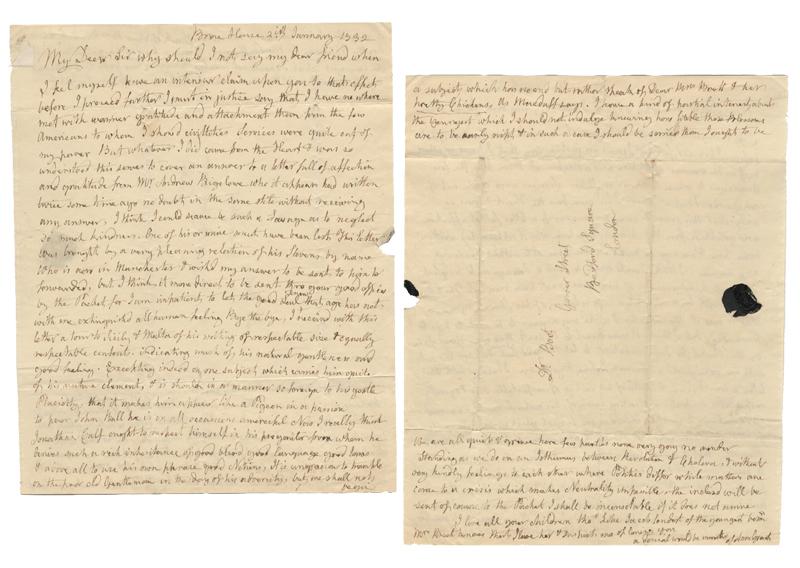 Brae House 24th January 1832
My Dear Sir why should I not say my dear friend when
I feel myself have an interior claim upon you to that effect
before I proceed farther I must in justice say that I have no where
met with warmer gratitude and attachment than from the few
Americans to whom I should civilities Services were quite out of
my power But whatever I did came from the Heart & was so
understood this serves to cover an answer to a letter full of affection
and gratitude from Mr Andrew Bigelowe who it appears had written
twice some time ago no doubt in the same stile without receiving
any answer. I think I could scarce be such a savage as to neglect
so much kindness. One of his or mine must have been lost This letter
was brought by a very pleasing relation of his Stevens by name
who is now in Manchester & wishd my answer to be sent to him to
forwarded, but I think it more direct to be sent thro your good offices
by the Packet for I am impatient to let the good soul that age has not
with me extinguishd all human feeling Bye the bye, I receivd with this
letter a tour to Sicily & Malta of his writing of respectable size & equally
respectable contents. indicating much of his natural gentleness and
good feeling. Excepting indeed on one subject which carries him quite
out of his native element, & is shewn in a manner so foreign to his gentle
Placidity, that it makes him appear like a Pigeon in a passion
to poor John Bull he is on all occasions unmerciful Now I really think
Jonathan Calf ought to respect himself in his progenitor from whom he
derives such a rich inheritance of good blood good Language good laws
& above all to use his own phrase good Notions, It is ungracious to trample
on the poor old Gentleman in the day of his adversity, but one shall not
a subject which has no end but rather speak of Dear Mrs Bratt & her
pretty Chickens, as Macduff says. I have a kind of partial interest about
the Youngest which I should not indulge knowing how liable those Blossoms
are to be early nipt & in such a case I should be sorrier than I ought to be
Dr Bott
Gower Street
Bedford Square
London
We are all quiet & grave here few parties none very gay no wonder
Standing as we do on an Isthmus between Revolution & Cholera, & without
very kindly feelings to each other where Politics differ while matters are
come to a crisis which makes Neutrality impossible the inclosed will be
sent of course to the Packet I shall be inconsolable if it does not arrive
I love all your children tho I like Jacob fondest of the youngest born
Mrs Bratt knows that I love her